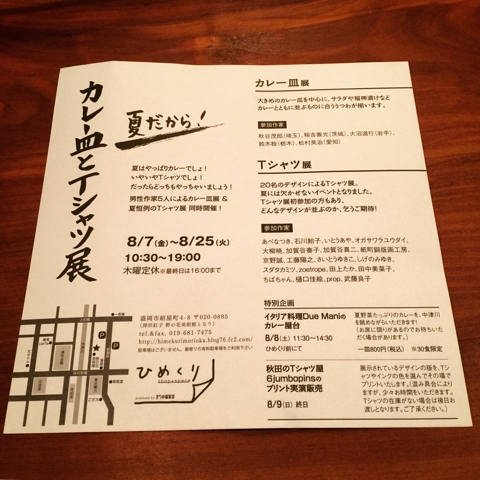 カレー皿とTシャツ展
夏だから!
夏はやっぱりカレーでしょ!
いやいやTシャツでしょ!
だったらどっちもやっちゃいましょう!
男性作家5人によるカレー皿展 &
夏恒例のTシャツ展 同時開催!
8/7(金)〜8/25(火)
10:30〜19:00
木曜定休 ※最終日は16:00まで
盛岡市紺屋町4-8 〒020-0885
tel.&fax. 019-681-7475
http://himekurimorioka.blog76.fc2.com/
駐車場はございません。最寄りの有料駐車場をご利用下さい
ひめくり
カレー皿展
大きめのカレー皿を中心に、サラダや福神漬けなど
カレーとともに並ぶものに合ううつわが揃います。
参加作家
秋谷茂郎(埼玉)、稲吉善光(茨城)、大沼道行(岩手)、
鈴木稔(栃木)、松村英治(愛知)
Tシャツ展
20名のデザインによるTシャツ展。
夏には欠かせないイベントとなりました。
Tシャツ展初参加の方もあり、
どんなデザインが並ぶのか、乞うご期待!
参加作家
あべなつき、石川酚子、いとうあや、オガサワラユウダイ、
大柳暁、加賀谷奏子、加賀谷真二、紙町銅版画工房、
京野誠、工藤陽之、さいとうゆきこ、しげのみゆき、
スダタカミツ、zoetrope、田上たか、田中美菜子、
ちばちゃん、樋口佳絵、prop、武藤良子
特別企画
イタリア料理Due Maniの
カレー屋台
8/8(土) 11:30〜14:30
ひめくり前にて
夏野菜たっぷりのカレーを、中津川
を眺めながらいただきます!
(お席に限りがあるのでお待ちいた
だく場合があります。)
一皿800円(税込) ※30食限定
秋田のTシャツ屋
6jumbopinsの
プリント実演販売
8/9(日) 終日
展示されているデザインの版を、T
シャツやインクの色を選んでその場で
プリントいたします。(混み具合により
ますが、少々お時間をいただきます。
Tシャツの在庫がない場合は後日お
渡しとなります。ご了承ください。)